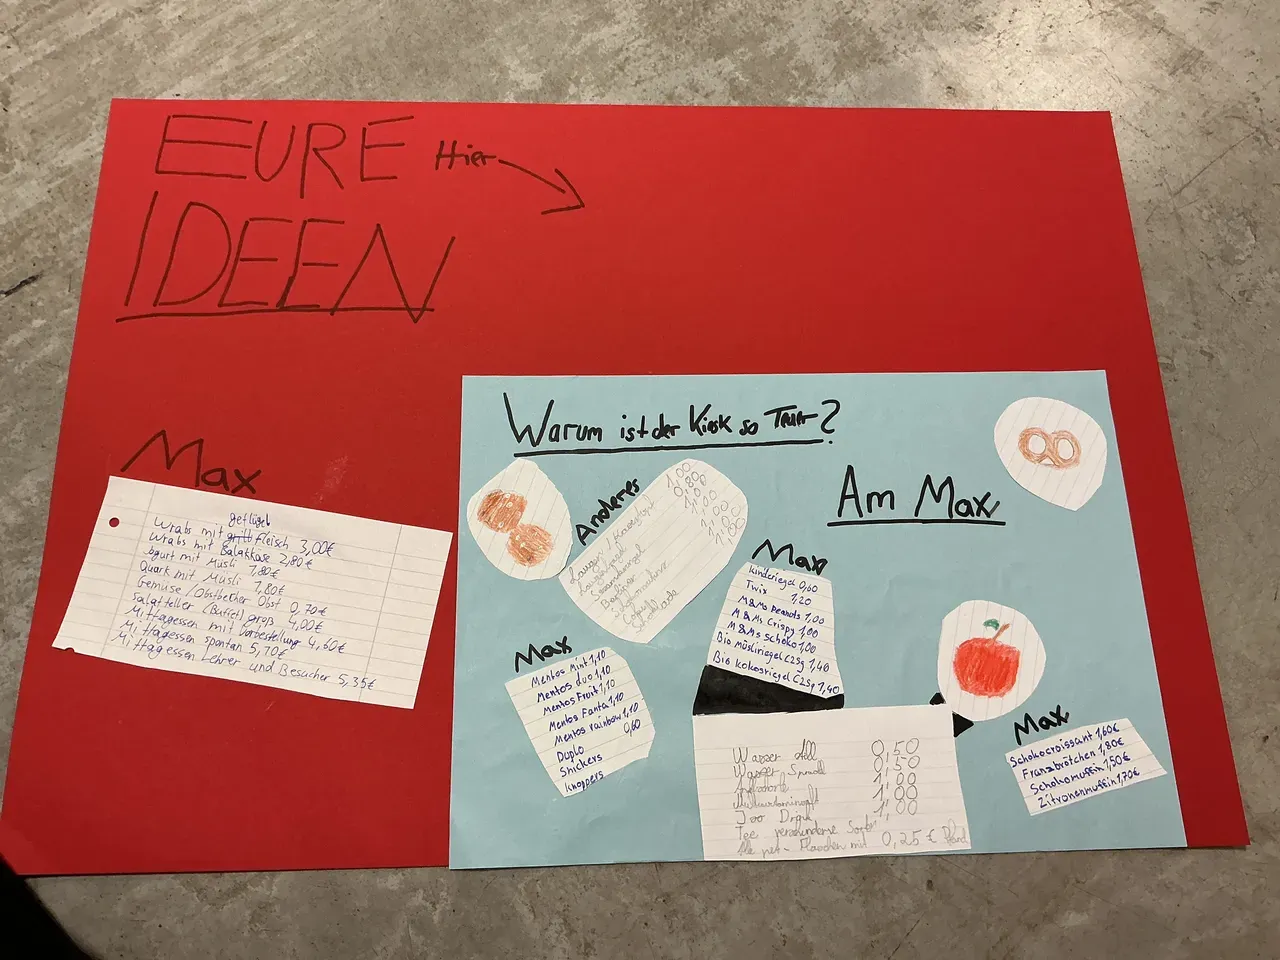 EURE
IDEEN
Hier
Max
geflügel
Wrabs mit grill fleisch 3,00€
Wrabs mit Salatkäse 2,80€
ogurt mit Müsli 1,80€
Quark mit Müsli 1,80€
Gemüse/Obstbecher Obst 0,70€
Salatteller (Buffet) groß 4,00€
Mittagessen mit Vorbestellung 4,60€
Mittagessen spontan 5,70€
Mittagessen Lehrer und Besucher 5,35€
Warum ist der Kiosk so
Am Max
Anderes
1,00
0,80
1,00
1,00
1,00
1,00
Max
Kinderiegel 0,60
Twix 1,20
M&Ms Peanuts 1,00
M&Ms Crispy 1,00
M&Ms Schoko 1,00
Bio Müsliriegel C25g 1,40
Bio Kokosriegel C25g 1,40
Max
Mentos Mint 1,10
Mentos duo 1,10
Mentos Fruit 1,10
Mentos Fanta 1,10
Mentos rainbow 1,10
Duplo 0,60
Snickers
Knoppers
Wasser 0,50
Wasser 0,50
1,00
1,00
1,00
Tee verschiedene
Flaschen mit 0,25€ Pfand
Max
Schokocroissant 1,60€
Franzbrötchen 1,80€
Schokomuffin 1,50€
Zitronenmuffin 1,70€